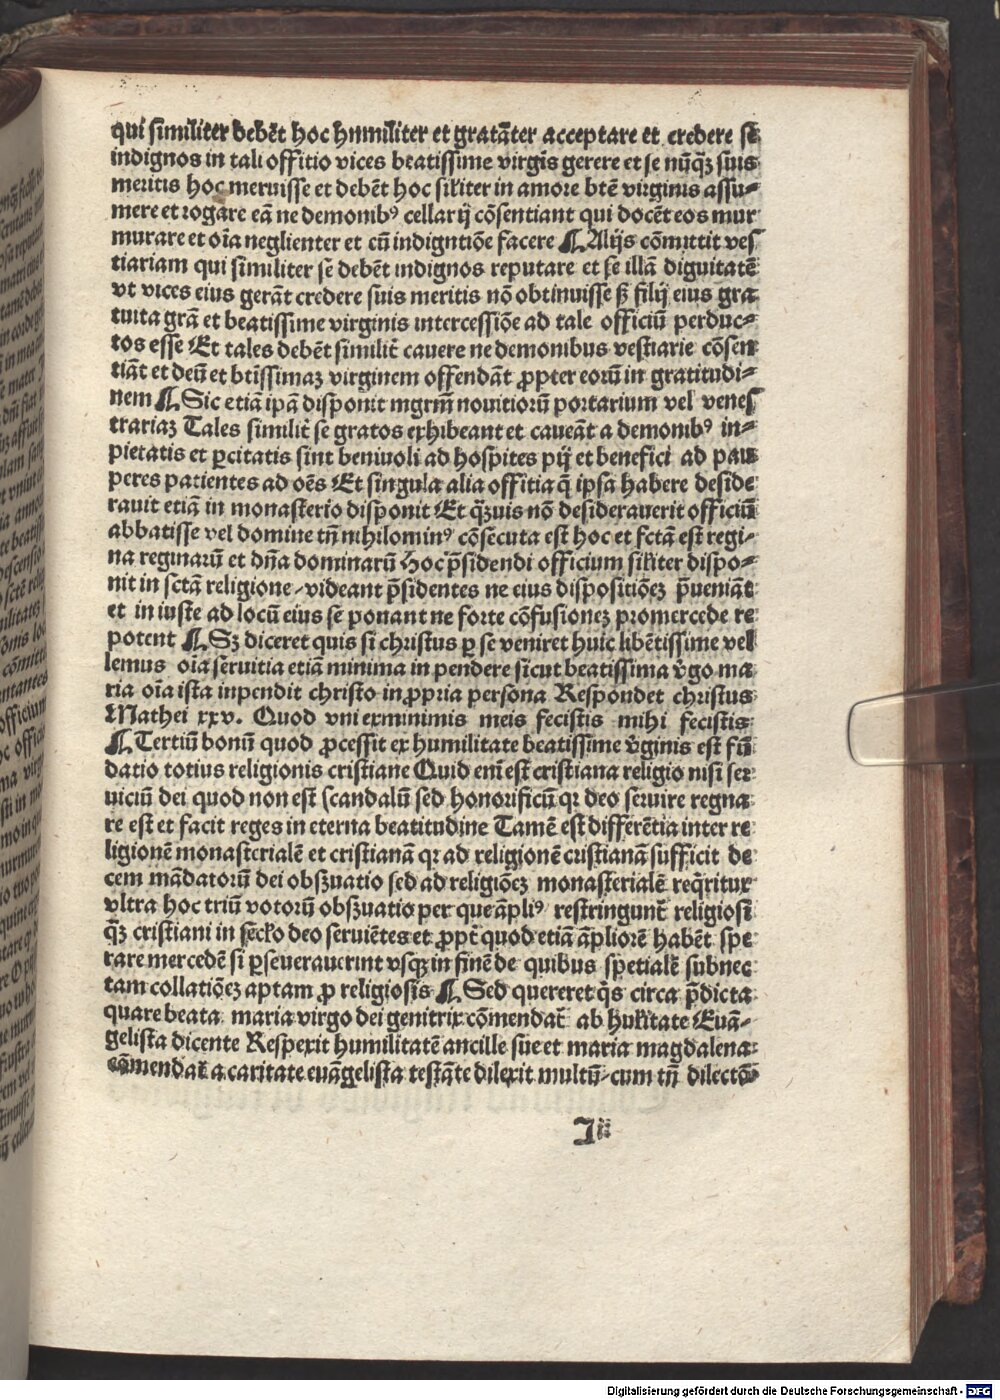 qui similiter debēt hoc hnmiliter et gratāter acceptare et credere se
indignos in tali offitio vices beatissime virgīs gerere et se nūq̄ʒ suis
meritis hoc meruisse et debēt hoc sikiter in amore btē virginis assu-
mere et rogare eā ne demonibꝰ cellarij cōsentiant qui docēt eos mur
murare et oīa neglienter et cū indigntiōe facere ¶ Alijs cōmittit ves
tiariam qui similiter se debēt indignos reputare et se illā diguitatē
vt vices eius gerāt credere suis meritis nō obtinuisse sʒ filij eius gra
tuita grā et beatissime virginis intercessiōe ad tale officiū perduc-
tos esse Et tales debēt similit̄ cauere ne demonibus vestiarie cōsen
tiāt et deū et btīssimaʒ virginem offendāt ꝓpter eorū in gratitudi-
nem ¶ Sic etiā ipā disponit mgrm̄ nouitiorū portarium vel venes
trariaʒ Tales similit̄ se gratos exhibeant et caueāt a demonibꝰ in-
pietatis et ꝑcitatis sint beniuoli ad hospites pij et benefici ad pau
peres patientes ad oēs Et singula alia offitia q̄ ipsa habere deside
rauit etiā in monasterio disponit Et q̄ʒuis nō desiderauerit officiū
abbatisse vel domine tn̄ nihilominꝰ cōsecuta est hoc et fctā est regi-
na reginarū et dn̄a dominarū Hoc p̄sidendi officium sikiter dispo-
nit in sctā religione videant p̄sidentes ne eius dispositiōeʒ p̄ueniāt
et in iuste ad locū eius se ponant ne forte cōfusioneʒ pro mercede re
potent ¶ Sʒ diceret quis si christus ꝑ se veniret huic libētissime vel
lemus oīa seruitia etiā minima in pendere sicut beatissima v̄go ma
ria oīa ista inpendit christo in ꝓpria persona Respondet christus
Mathei xxv. Quod vni ex minimis meis fecistis mihi fecistis
¶ Tertiū bonū quod ꝓcessit ex humilitate beatissime v̄ginis est fū
datio totius religionis cristiane Quid enī est cristiana religio nisi ser
uiciū dei quod non est scandalū sed honorificū qꝛ deo seruire regna
re est et facit reges in eterna beatitudine Tamē est differētia inter re
ligionē monasterialē et cristianā qꝛ ad religionē cristianā sufficit de
cem mādatorū dei obsʒuatio sed ad religiōeʒ monasterialē req̄ritur
vltra hoc triū votorū obsʒuatio per que āpliꝰ restringunt̄ religiosi
q̄ʒ cristiani in secko deo seruiētes et ꝓpt̄ quod etiā āpliorē habēt spe
rare mercedē si ꝑseuerauerint vsqʒ in finē de quibus spetialē subnec
tam collatiōeʒ aptam ꝓ religiosis ¶ Sed quereret q̄s circa p̄dicta
quare beata maria virgo dei genitrix cōmendat̄ ab hukitate Euā-
gelista dicente Respexit humilitatē ancille sue et maria magdalena
cōmendat̄ a caritate euāgelista testāte dilexit multū cum tn̄ dilectō
I ii
Digitalisierung gefördert durch die Deutsche Forschungsgemeinschaft - DFG